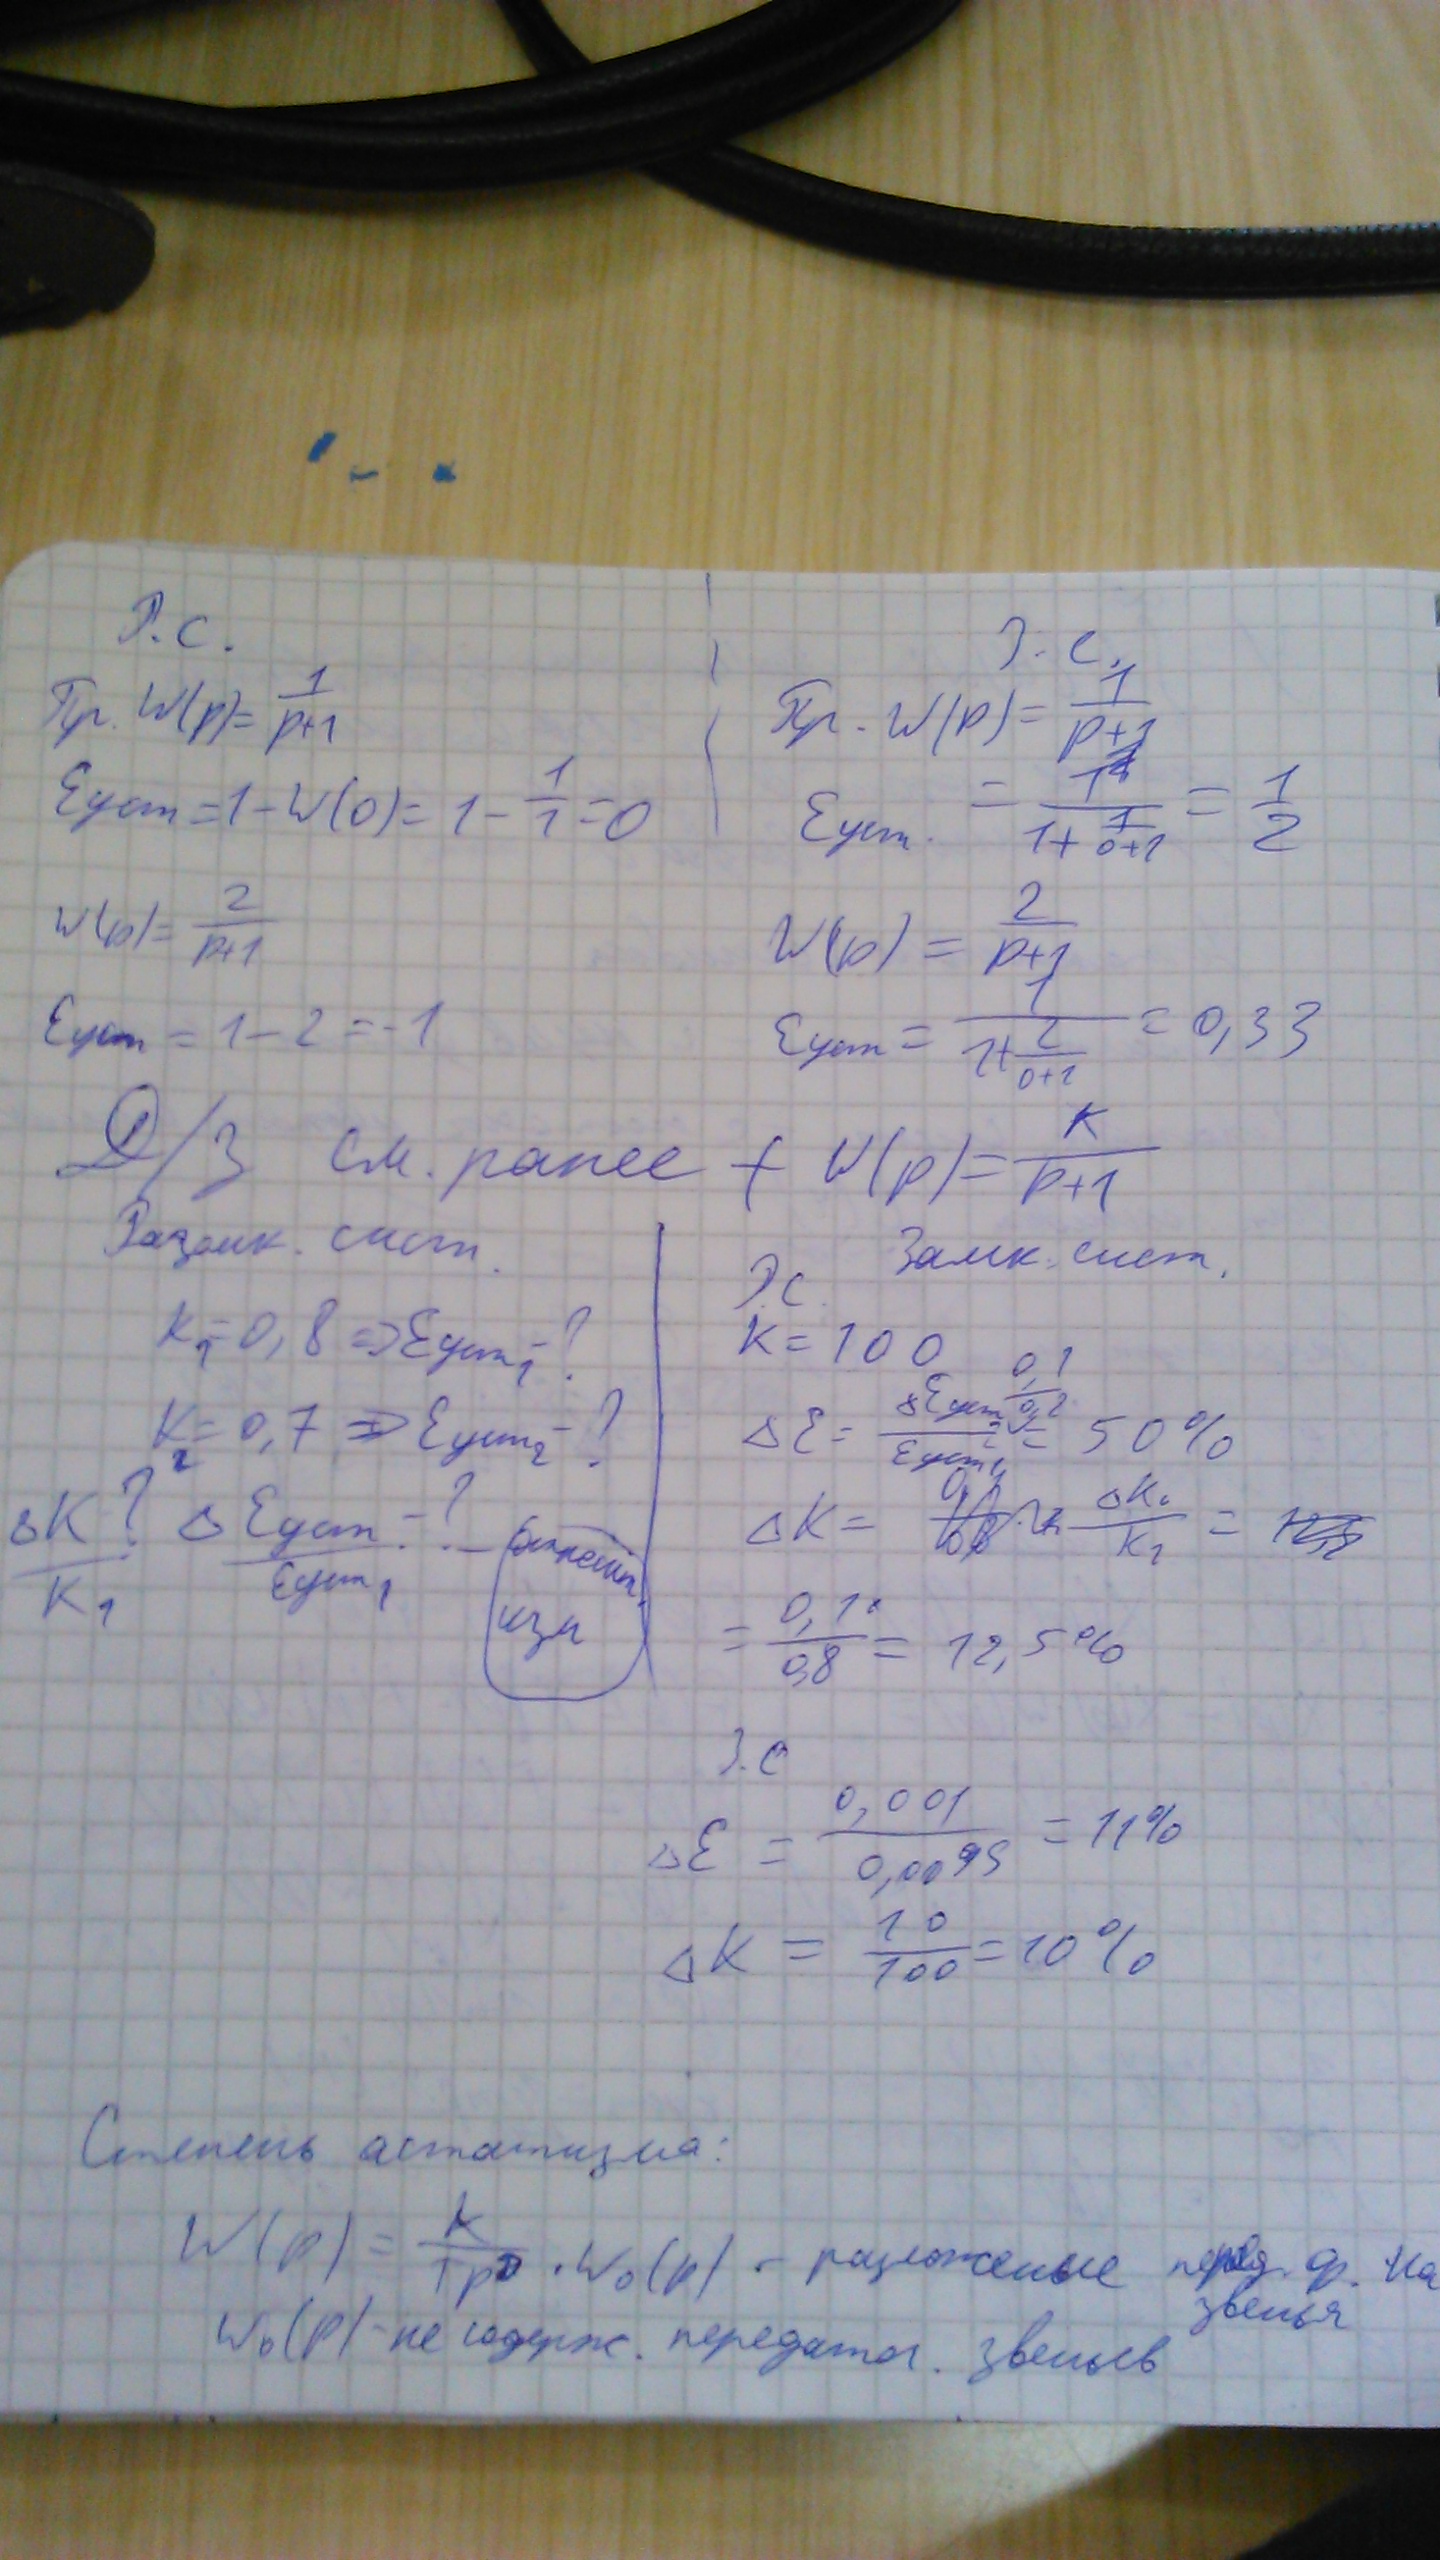 Р.С.
Пр. W(p) = 1/(p+1)
Eуст = 1 - W(0) = 1 - 1/1 = 0
W(p) = 2/(p+1)
Eуст = 1 - 2 = -1
З.С.
Пр. W(p) = 1/(p+1)
Eуст. = 1/(1 + 1/(0+1)) = 1/2
W(p) = 2/(p+1)
Eуст = 1/(1 + 2/(0+1)) = 0,33
Д/З см. ранее + W(p) = K/(p+1)
Разомк. сист.
K₁ = 0,8 => Eуст₁ = ?
K₂ = 0,7 => Eуст₂ = ?
ΔK/K₁ ? ΔEуст/Eуст₁ = ? -
изм
Замк. сист.
Р.С.
K = 100
ΔE = ΔEуст/Eуст₁ = 0,1/0,2 = 50%
ΔK = ΔK/K₁ =
= 0,1/0,8 = 12,5%
З.С
ΔE = 0,001/0,0099 = 11%
ΔK = 10/100 = 10%
Степень астатизма:
W(p) = K/Tp · W₀(p) - разложение перед. ф. на
звенья
W₀(p) - не содерж. передаточ. звеньев